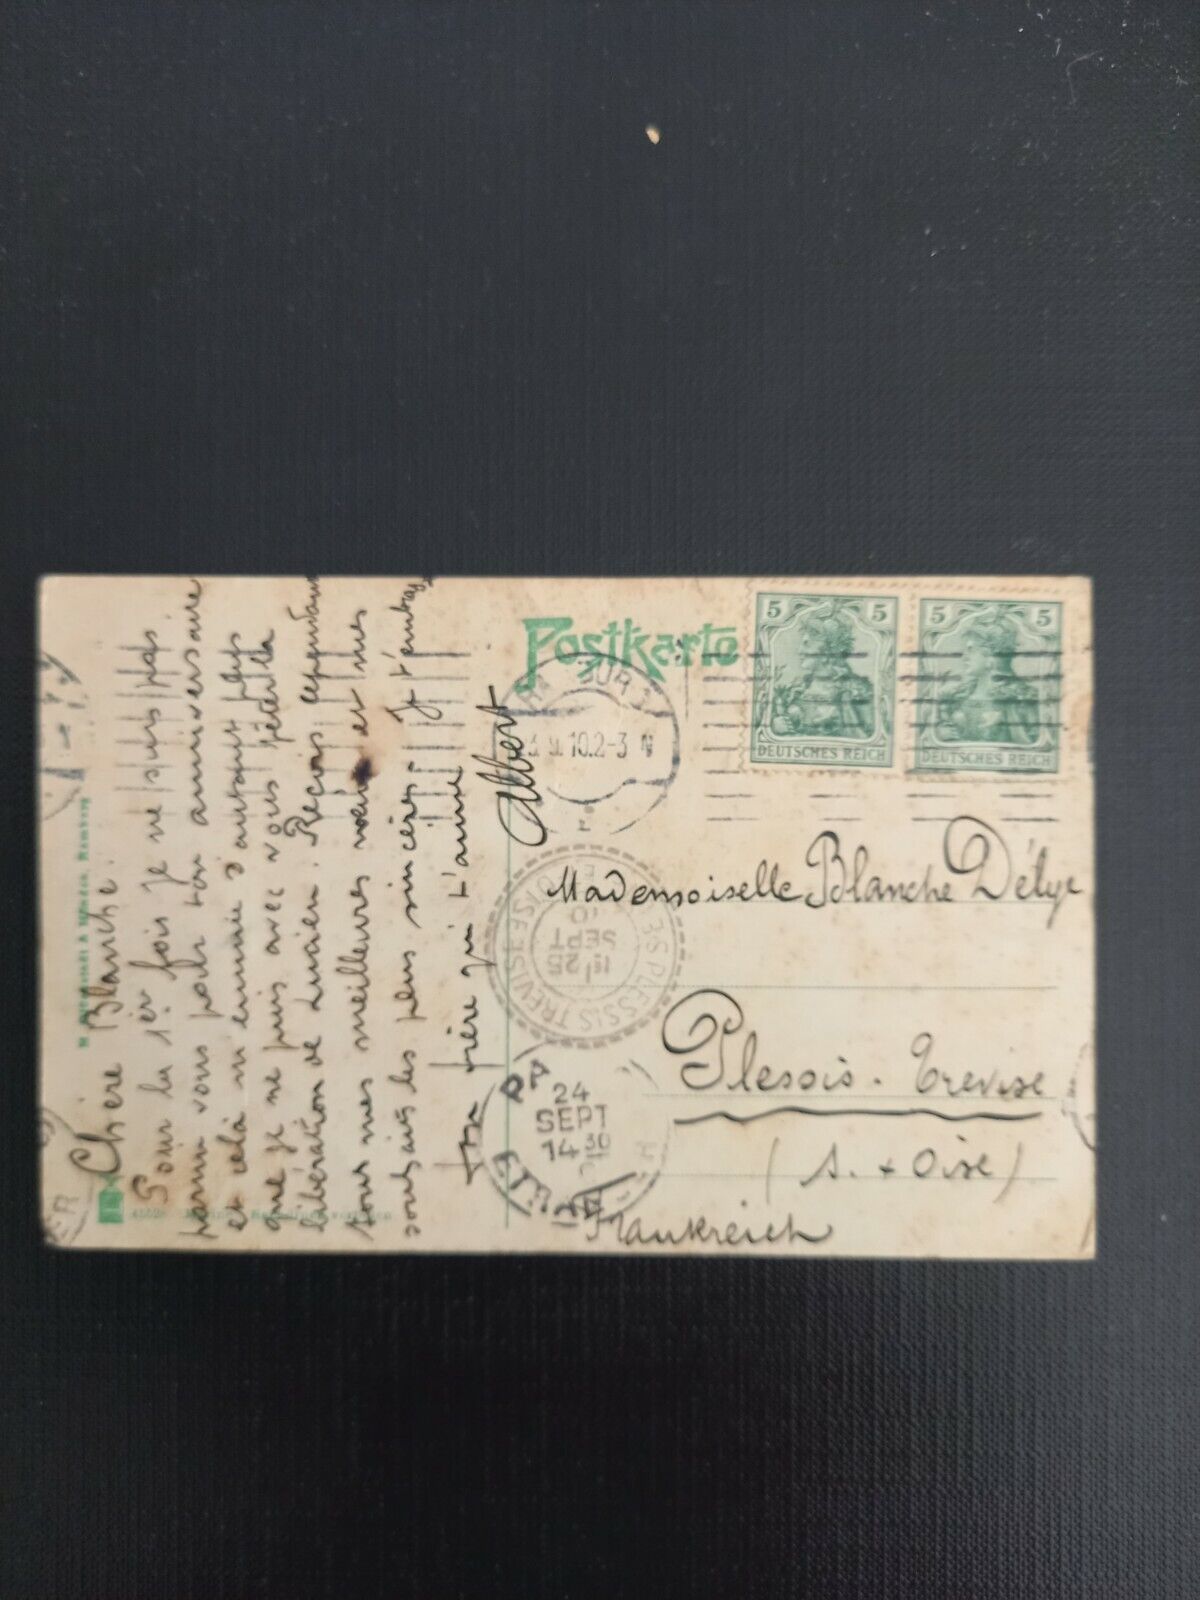 Postkarte
5 5
DEUTSCHES REICH
5 5
DEUTSCHES REICH
10.2-3 N
Mademoiselle Blanche Délye
Plessis-Trevise
(S. + Oise)
Frankreich
LE PLESSIS TREVISE
SEINE ET OISE
25
SEPT
10
24
SEPT
14 30
Chère Blanche.
Pour la 1er fois je ne suis pas
parmi vous pour ton anniversaire
et celà m'ennuie d'autant plus
que je ne puis avec vous fêter la
libération de Lucien. Reçois cependant
tous mes meilleures vœux et mes
souhaits les plus sincères. Je t'embrasse
ton frère qui t'aime
Albert